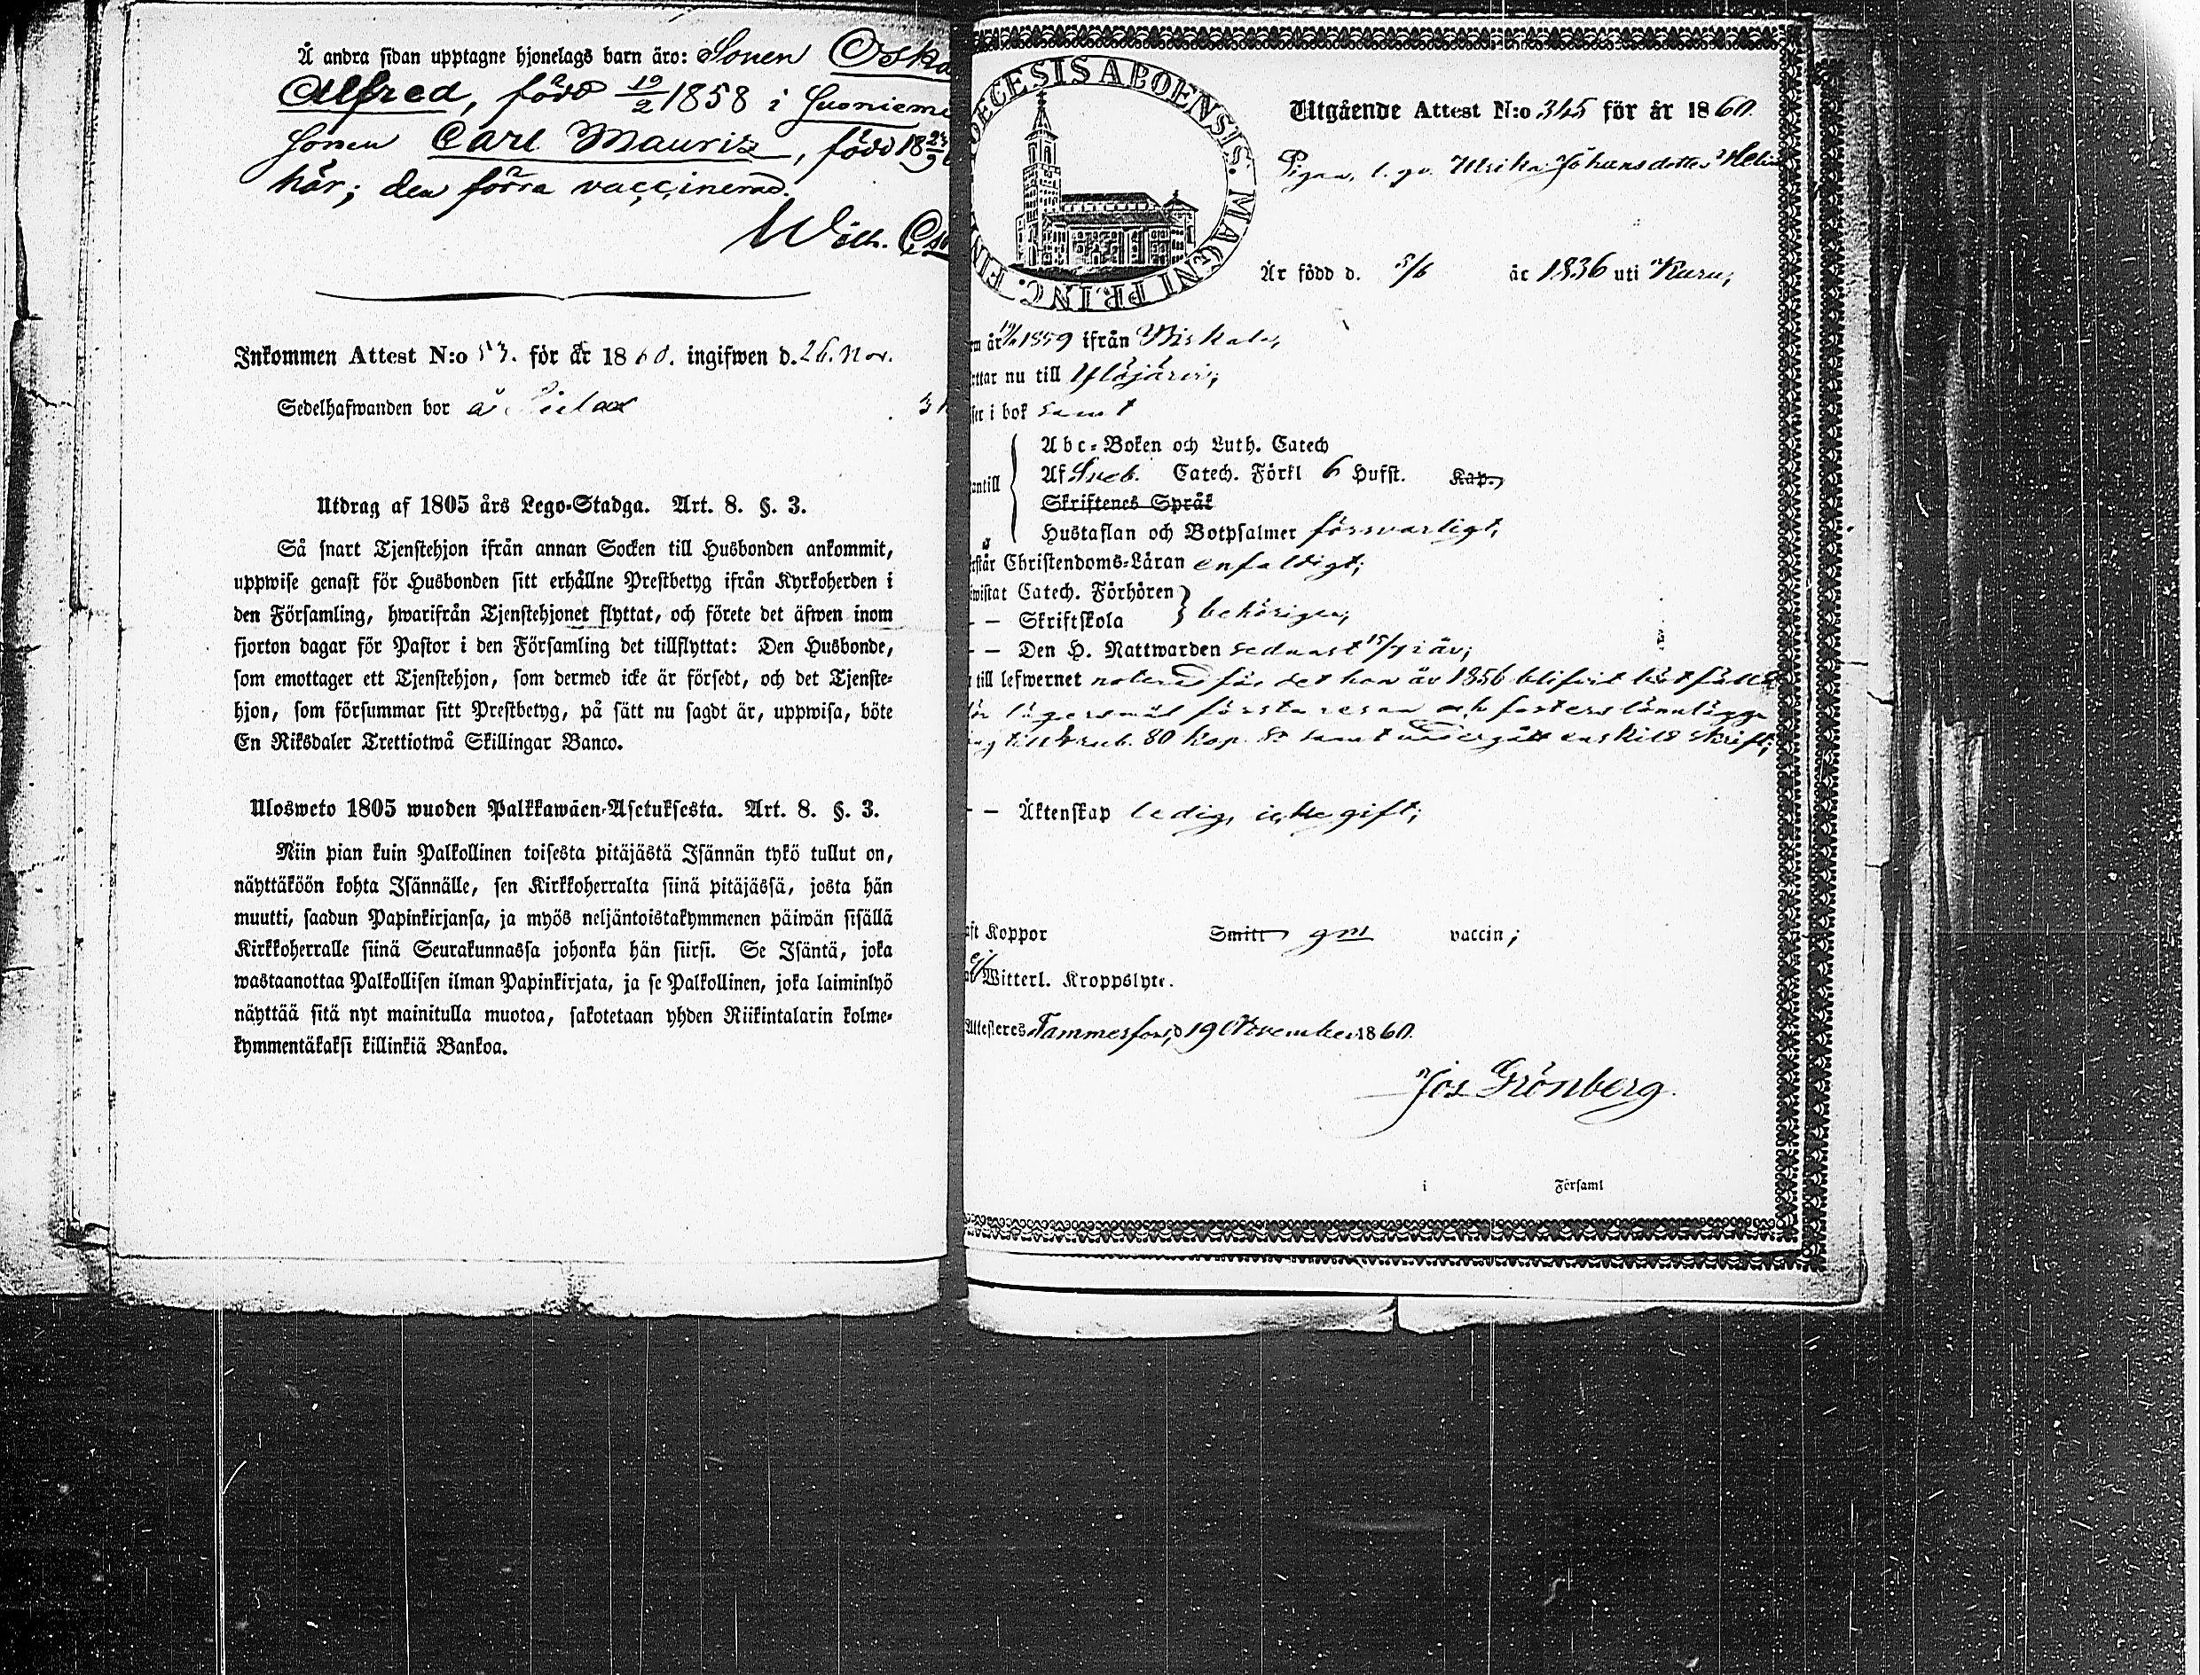 Å andra sidan upptagne hjonelags barn äro: Sonen Oska
Alfred, född 19/2 1858 i Suonieme
Sonen Carl Mauriz, född 18
här; den förra vaccinerad.
Wilh.
Inkommen Attest N:o 53. för år 1860. ingifwen d. 26. Nov.
Sedelhafwanden bor å
Utdrag af 1805 års Lego-Stadga. Art. 8. §. 3.
Så snart Tjenstehjon ifrån annan Socken till Husbonden ankommit,
uppwise genast för Husbonden sitt erhållne Prestbetyg ifrån Kyrkoherden i
den Församling, hwarifrån Tjenstehjonet flyttat, och förete det äfwen inom
fjorton dagar för Pastor i den Församling det tillflyttat: Den Husbonde,
som emottager ett Tjenstehjon, som dermed icke är försedt, och det Tjenste-
hjon, som försummar sitt Prestbetyg, på sätt nu sagdt är, uppwisa, böte
En Riksdaler Trettiotwå Skillingar Banco.
Ulosweto 1805 wuoden Palkkawäen-Asetuksesta. Art. 8. §. 3.
Niin pian kuin Palkollinen toisesta pitäjästä Isännän tykö tullut on,
näyttäköön kohta Isännälle, sen Kirkkoherralta siinä pitäjässä, josta hän
muutti, saadun Papinkirjansa, ja myös neljäntoistakymmenen päiwän sisällä
Kirkkoherralle siinä Seurakunnassa johonka hän siirsi. Se Isäntä, joka
wastaanottaa Palkollisen ilman Papinkirjata, ja se Palkollinen, joka laiminlyö
näyttää sitä nyt mainitulla muotoa, sakotetaan yhden Riikintalarin kolme-
kymmentäkaksi killinkiä Bankoa.
DECESIS ABOENSIS. MAGNI PRINC. FIN
Utgående Attest N:o 345 för år 1860.
Pigan, l. qv. Ulrika Johansdotter Helin
Är född d. 5/6 år 1836 uti Kuru;
m år 1859 ifrån Birkala,
ttar nu till Ylöjärvi;
ser i bok samt
antill
Abc-Boken och Luth. Catech
Af Sveb. Catech. Förkl 6 Hufst. Kap.
Skriftenes Språk
Hustaflan och Botpsalmer försvarligt,
rstår Christendoms-Läran enfaldigt;
wistat Catech. Förhören
- — Skriftskola behörigen;
- — Den H. Nattwarden sednast 15/7 i år;
till lefwernet noterad för det hon år 1856 blifvit bötfälld
för lägersmål första resan och fosters lönnlägg
till 4 rub. 80 kop. Sr samt undergått enskild skrift;
- — Äktenskap ledig, icke gift;
ft Koppor Smitt gm vaccin;
ej Witterl. Kroppslyte.
Attesteres Tammerfors, d 19 November 1860.
Jos Grönberg.
i Församl